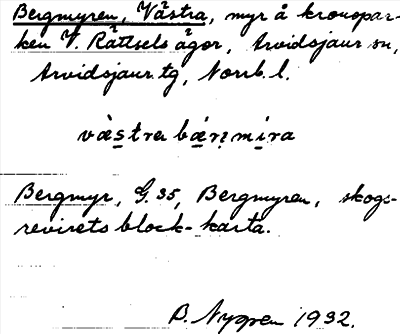 Bergmyren, Västra, myr å kronopar-
ken V. Rättsels ägor, Arvidsjaur sn,
Arvidsjaur tg, Norrb. l.
væ̀stra bǽrimira
Bergmyr, G. 35, Bergmyren, skogs-
revirets block-karta.
B. Nygren 1932.